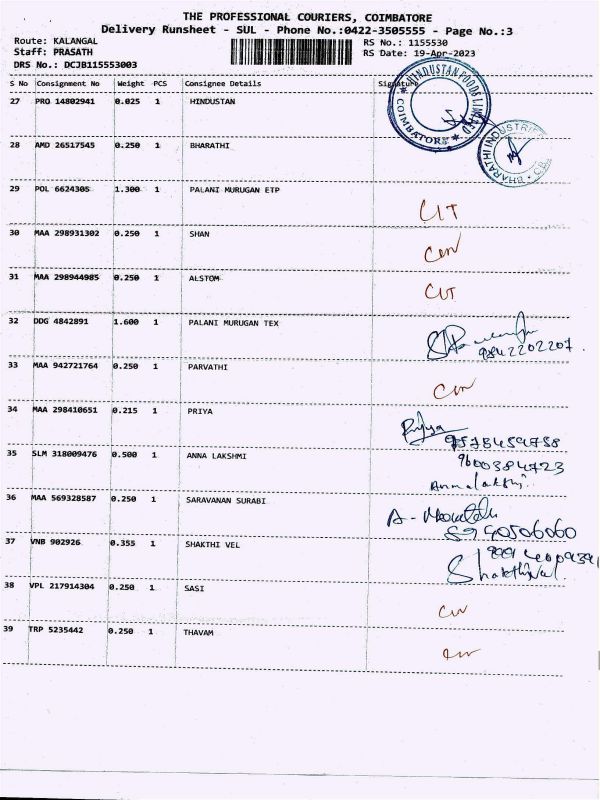 THE PROFESSIONAL COURIERS, COIMBATORE
Delivery Runsheet - SUL - Phone No.:0422-3505555 - Page No.:3
Route: KALANGAL RS No.: 1155530
Staff: PRASATH RS Date: 19-Apr-2023
DRS No.: DCJB115553003
S No Consignment No Weight PCS Consignee Details Signature
HINDUSTAN FOODS LIMITED COIMBATORE
27 PRO 14802941 0.025 1 HINDUSTAN
BHARATHI INDUSTRIES CBE
28 AMD 26517545 0.250 1 BHARATHI
29 POL 6624305 1.300 1 PALANI MURUGAN ETP
30 MAA 298931302 0.250 1 SHAN
31 MAA 298944985 0.250 1 ALSTOM
32 DDG 4842891 1.600 1 PALANI MURUGAN TEX
9842202207
33 MAA 942721764 0.250 1 PARVATHI
34 MAA 298410651 0.215 1 PRIYA
Priya
35 SLM 318009476 0.500 1 ANNA LAKSHMI
9600384723
Annalakshi
36 MAA 569328587 0.250 1 SARAVANAN SURABI
37 VNB 902926 0.355 1 SHAKTHI VEL
Shakthivel.
38 VPL 217914304 0.250 1 SASI
39 TRP 5235442 0.250 1 THAVAM